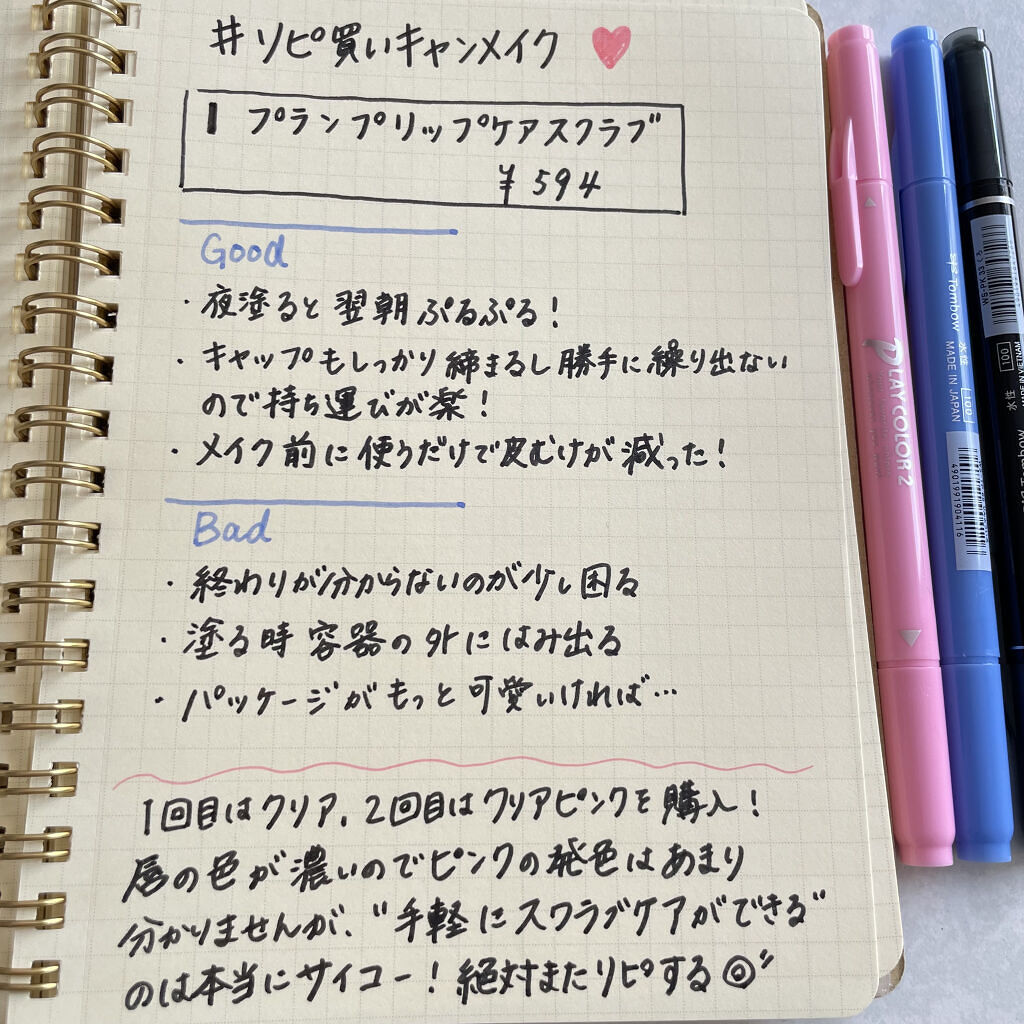 #リピ買いキャンメイク
1 プランプリップケアスクラブ
¥594
Good
・夜塗ると翌朝ぷるぷる!
・キャップもしっかり締まるし勝手に繰り出ない
ので持ち運びが楽!
・メイク前に使うだけで皮むけが減った!
Bad
・終わりが分からないのが少し困る
・塗る時容器の外にはみ出る
・パッケージがもっと可愛いければ…
1回目はクリア、2回目はクリアピンクを購入!
唇の色が濃いのでピンクの発色はあまり
分かりませんが、"手軽にスクラブケアができる"
のは本当にサイコー!絶対またリピする◎"
PLAY COLOR 2
Tombow 水性 100
MADE IN JAPAN
4901991904116
水性 100
Tombow